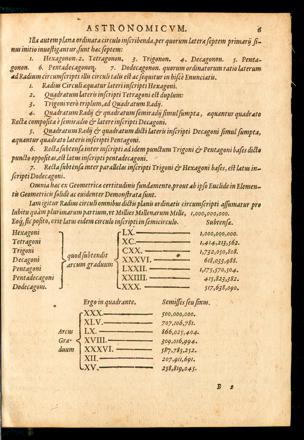 ASTRONOMICVM. 6
Illa autem plana ordinata circulo inscribenda, per quorum latera septem primarij si-
nus initio investigantur, sunt hæc septem:
1. Hexagonon. 2. Tetragonon. 3. Trigonon. 4. Decagonon. 5. Penta-
gonon. 6. Pentadecagonon. 7. Dodecagonon. quorum ordinatorum ratio laterum
ad Radium circumscripti illis circuli talis est ac sequitur in hisce Enunciatis.
1. Radius Circuli æquatur lateri inscripti Hexagoni.
2. Quadratum lateris inscripti Tetragoni est duplum:
3. Trigoni verò triplum, ad Quadratum Radij.
4. Quadratum Radij & quadratum semiradij simul sumpta, æquantur quadrato
Rectæ compositæ è semiradio & latere inscripti Decagoni.
5. Quadratum Radij & quadratum dicti lateris inscripti Decagoni simul sumpta,
æquantur quadrato lateris inscripti Pentagoni.
6. Recta subtensa inter inscripti ad idem punctum Trigoni & Pentagoni bases dicto
puncto oppositas, est latus inscripti pentadecagoni.
7. Recta subtensa inter parallelas inscripti Trigoni & Hexagoni bases, est latus in-
scripti Dodecagoni.
Omnia hæc ex Geometricæ certitudinis fundamento, prout ab ipso Euclide in Elemen-
tis Geometricis solidè ac evidenter Demonstrata sunt.
Iam igitur Radius circuli omnibus dictis planis ordinatis circumscripti assumatur pro
lubitu quàm plurimarum partium, ut Millies Millenarum Mille, 1,000,000,000.
Eoq́; sic posito, erit latus eodem inscripti in semicirculo. Subtensæ.
Hexagoni LX. 1,000,000,000.
Tetragoni XC. 1,414,213,562.
Trigoni CXX. 1,732,050,808.
Decagoni quod subtendit arcum graduum XXXVI. 618,033,988.
Pentagoni LXXII. 1,175,570,504.
Pentadecagoni XXIIII. 415,823,382.
Dodecagoni. XXX. 517,638,090.
Ergo in quadrante. Semisses seu sinus.
XXX. 500,000,000.
XLV. 707,106,781.
Arcus LX. 866,025,404.
Gra- XVIII. 309,016,994.
duum XXXVI. 587,785,252.
XII. 207,911,691.
XV. 258,819,045.
B 2